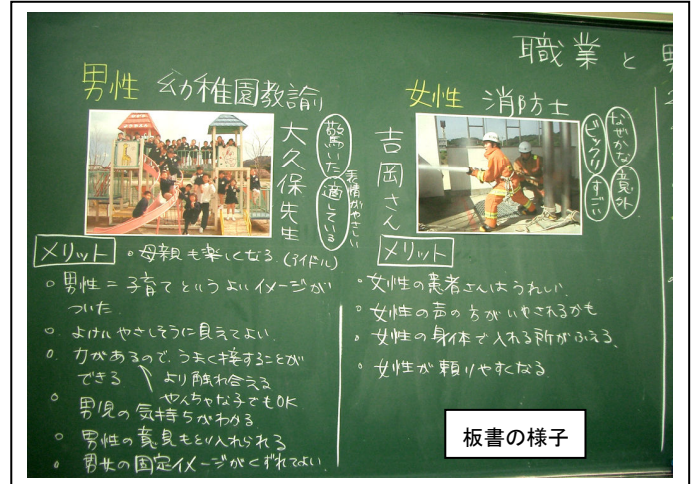 職業と男
男性 幼稚園教諭
大久保先生
驚いた
適している
表情がやさしい
メリット
・母親も楽しくなる(アイドル)
○男性=子育てというよいイメージが
ついた
○よけいやさしそうに見えてよい
○力があるので、うまく接することが
できる
より触れ合える
○やんちゃな子でもOK
男児の気持ちがわかる
○男性の意見もとり入れられる
○男女の固定イメージがくずれてよい
女性 消防士
吉岡さん
なぜかな
意外
ビックリ
すごい
メリット
・女性の患者さんはうれしい
○女性の声の方がいやされるかも
・女性の身体で入れる所がふえる
・女性が頼りやすくなる
板書の様子